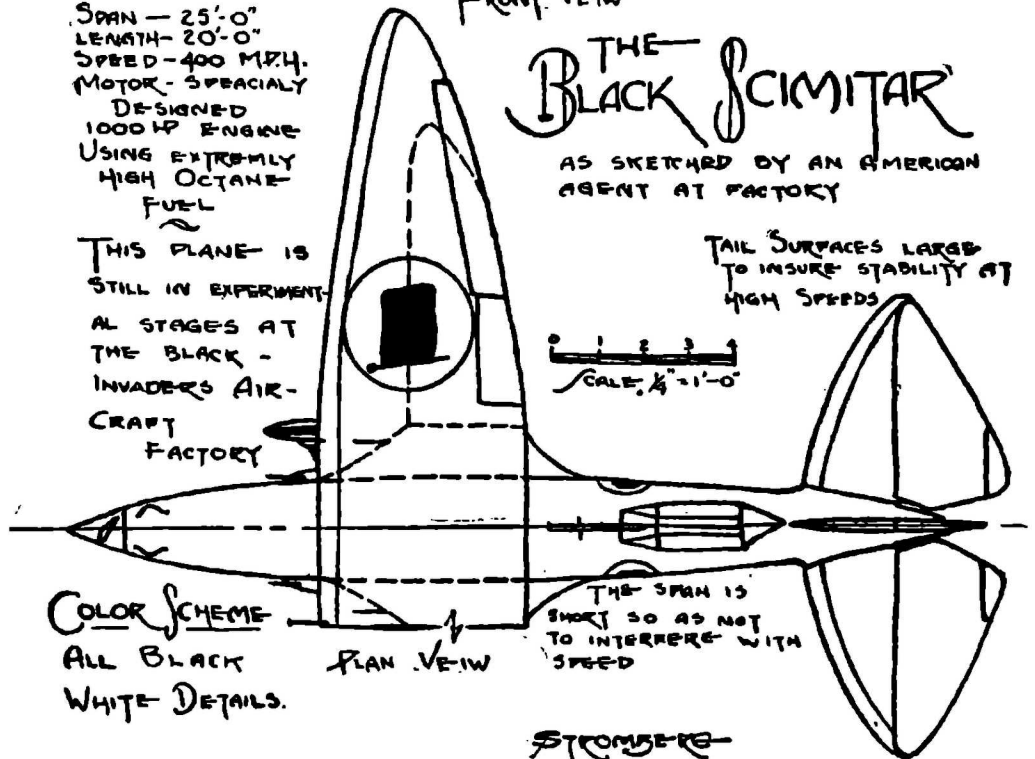 SPAN — 25'-0"
LENGTH- 20'-0"
SPEED - 400 M.P.H.
MOTOR - SPEACIALY
DESIGNED
1000 HP ENGINE
USING EXTREMLY
HIGH OCTANE
FUEL
THIS PLANE IS
STILL IN EXPERIMENT-
AL STAGES AT
THE BLACK -
INVADERS AIR-
CRAFT
FACTORY
FRONT VEIW
THE
BLACK SCIMITAR
AS SKETCHED BY AN AMERICAN
AGENT AT FACTORY
TAIL SURFACES LARGE
TO INSURE STABILITY AT
HIGH SPEEDS
0 1 2 3 4
SCALE. ¼" = 1'-0"
COLOR SCHEME
ALL BLACK
WHITE DETAILS.
PLAN VEIW
THE SPAN IS
SHORT SO AS NOT
TO INTERFERE WITH
SPEED
STROMBERG